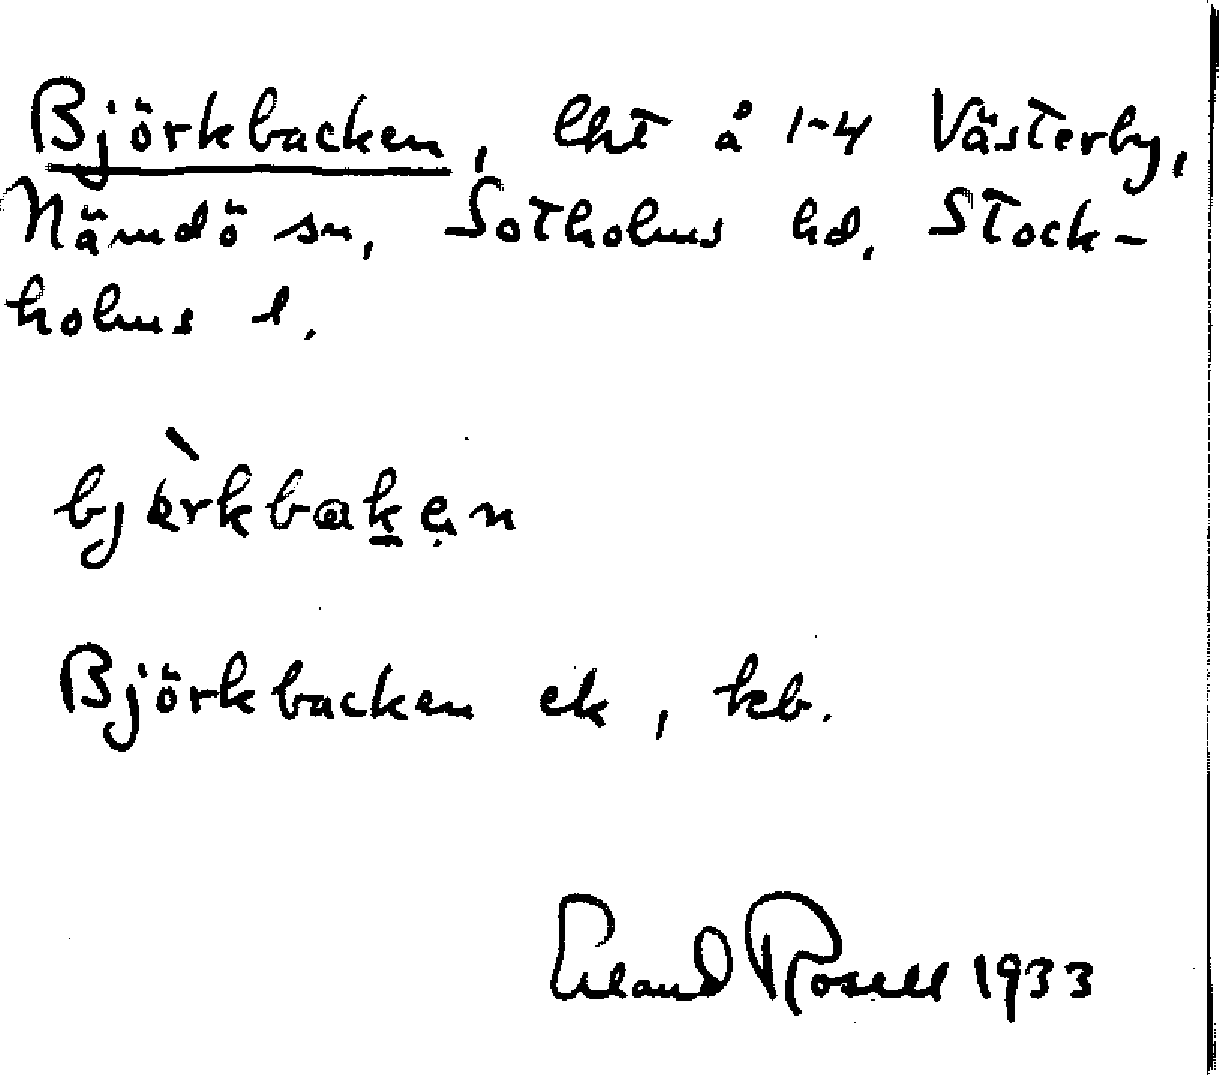 Björkbacken, lht å 1-4 Västerby,
Nämdö sn, Sotholms hd. Stock-
holms l.
Björkbacken ek, kb.
Erland Rosell 1933